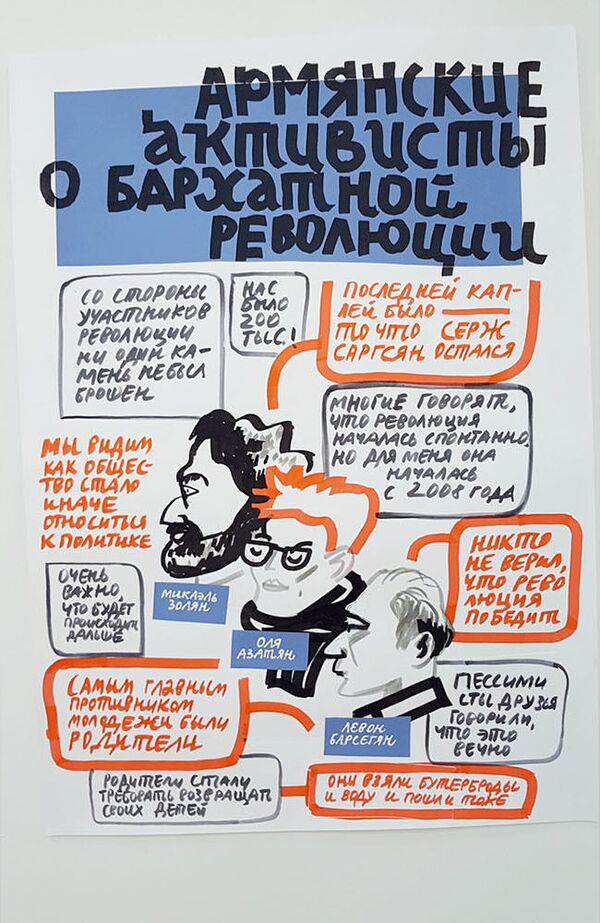 АРМЯНСКИЕ
АКТИВИСТЫ
О БАРХАТНОЙ
РЕВОЛЮЦИИ
СО СТОРОНЫ
УЧАСТНИКОВ
РЕВОЛЮЦИИ
НИ ОДИН КА-
МЕНЬ НЕ БЫЛ
БРОШЕН
НАС
БЫЛО
200
ТЫС!
ПОСЛЕДНЕЙ КАП-
ЛЕЙ БЫЛО
ТО ЧТО СЕРЖ
САРГСЯН ОСТАЛСЯ
МНОГИЕ ГОВОРЯТ,
ЧТО РЕВОЛЮЦИЯ
НАЧАЛАСЬ СПОНТАННО,
НО ДЛЯ МЕНЯ ОНА
НАЧАЛАСЬ
С 2008 ГОДА
МЫ ВИДИМ
КАК ОБЩЕС-
ТВО СТАЛО
ИНАЧЕ
ОТНОСИТЬСЯ
К ПОЛИТИКЕ
НИКТО
НЕ ВЕРИЛ,
ЧТО РЕВО
ЛЮЦИЯ
ПОБЕДИТ
ОЧЕНЬ
ВАЖНО,
ЧТО БУДЕТ
ПРОИСХОДИТЬ
ДАЛЬШЕ
МИКАЭЛЬ
ЗОЛЯН
ОЛЯ
АЗАТЯН
ЛЕВОН
БАРСЕГЯН
САМЫМ ГЛАВНЫМ
ПРОТИВНИКОМ
МОЛОДЕЖИ БЫЛИ
РОДИТЕЛИ
ПЕССИМИ
СТЫ ДРУЗЬЯ
ГОВОРИЛИ,
ЧТО ЭТО
ВЕЧНО
РОДИТЕЛИ СТАЛИ
ТРЕБОВАТЬ ВОЗВРАЩАТЬ
СВОИХ ДЕТЕЙ
ОНИ ВЗЯЛИ БУТЕРБРОДЫ
И ВОДУ И ПОШЛИ ТОЖЕ